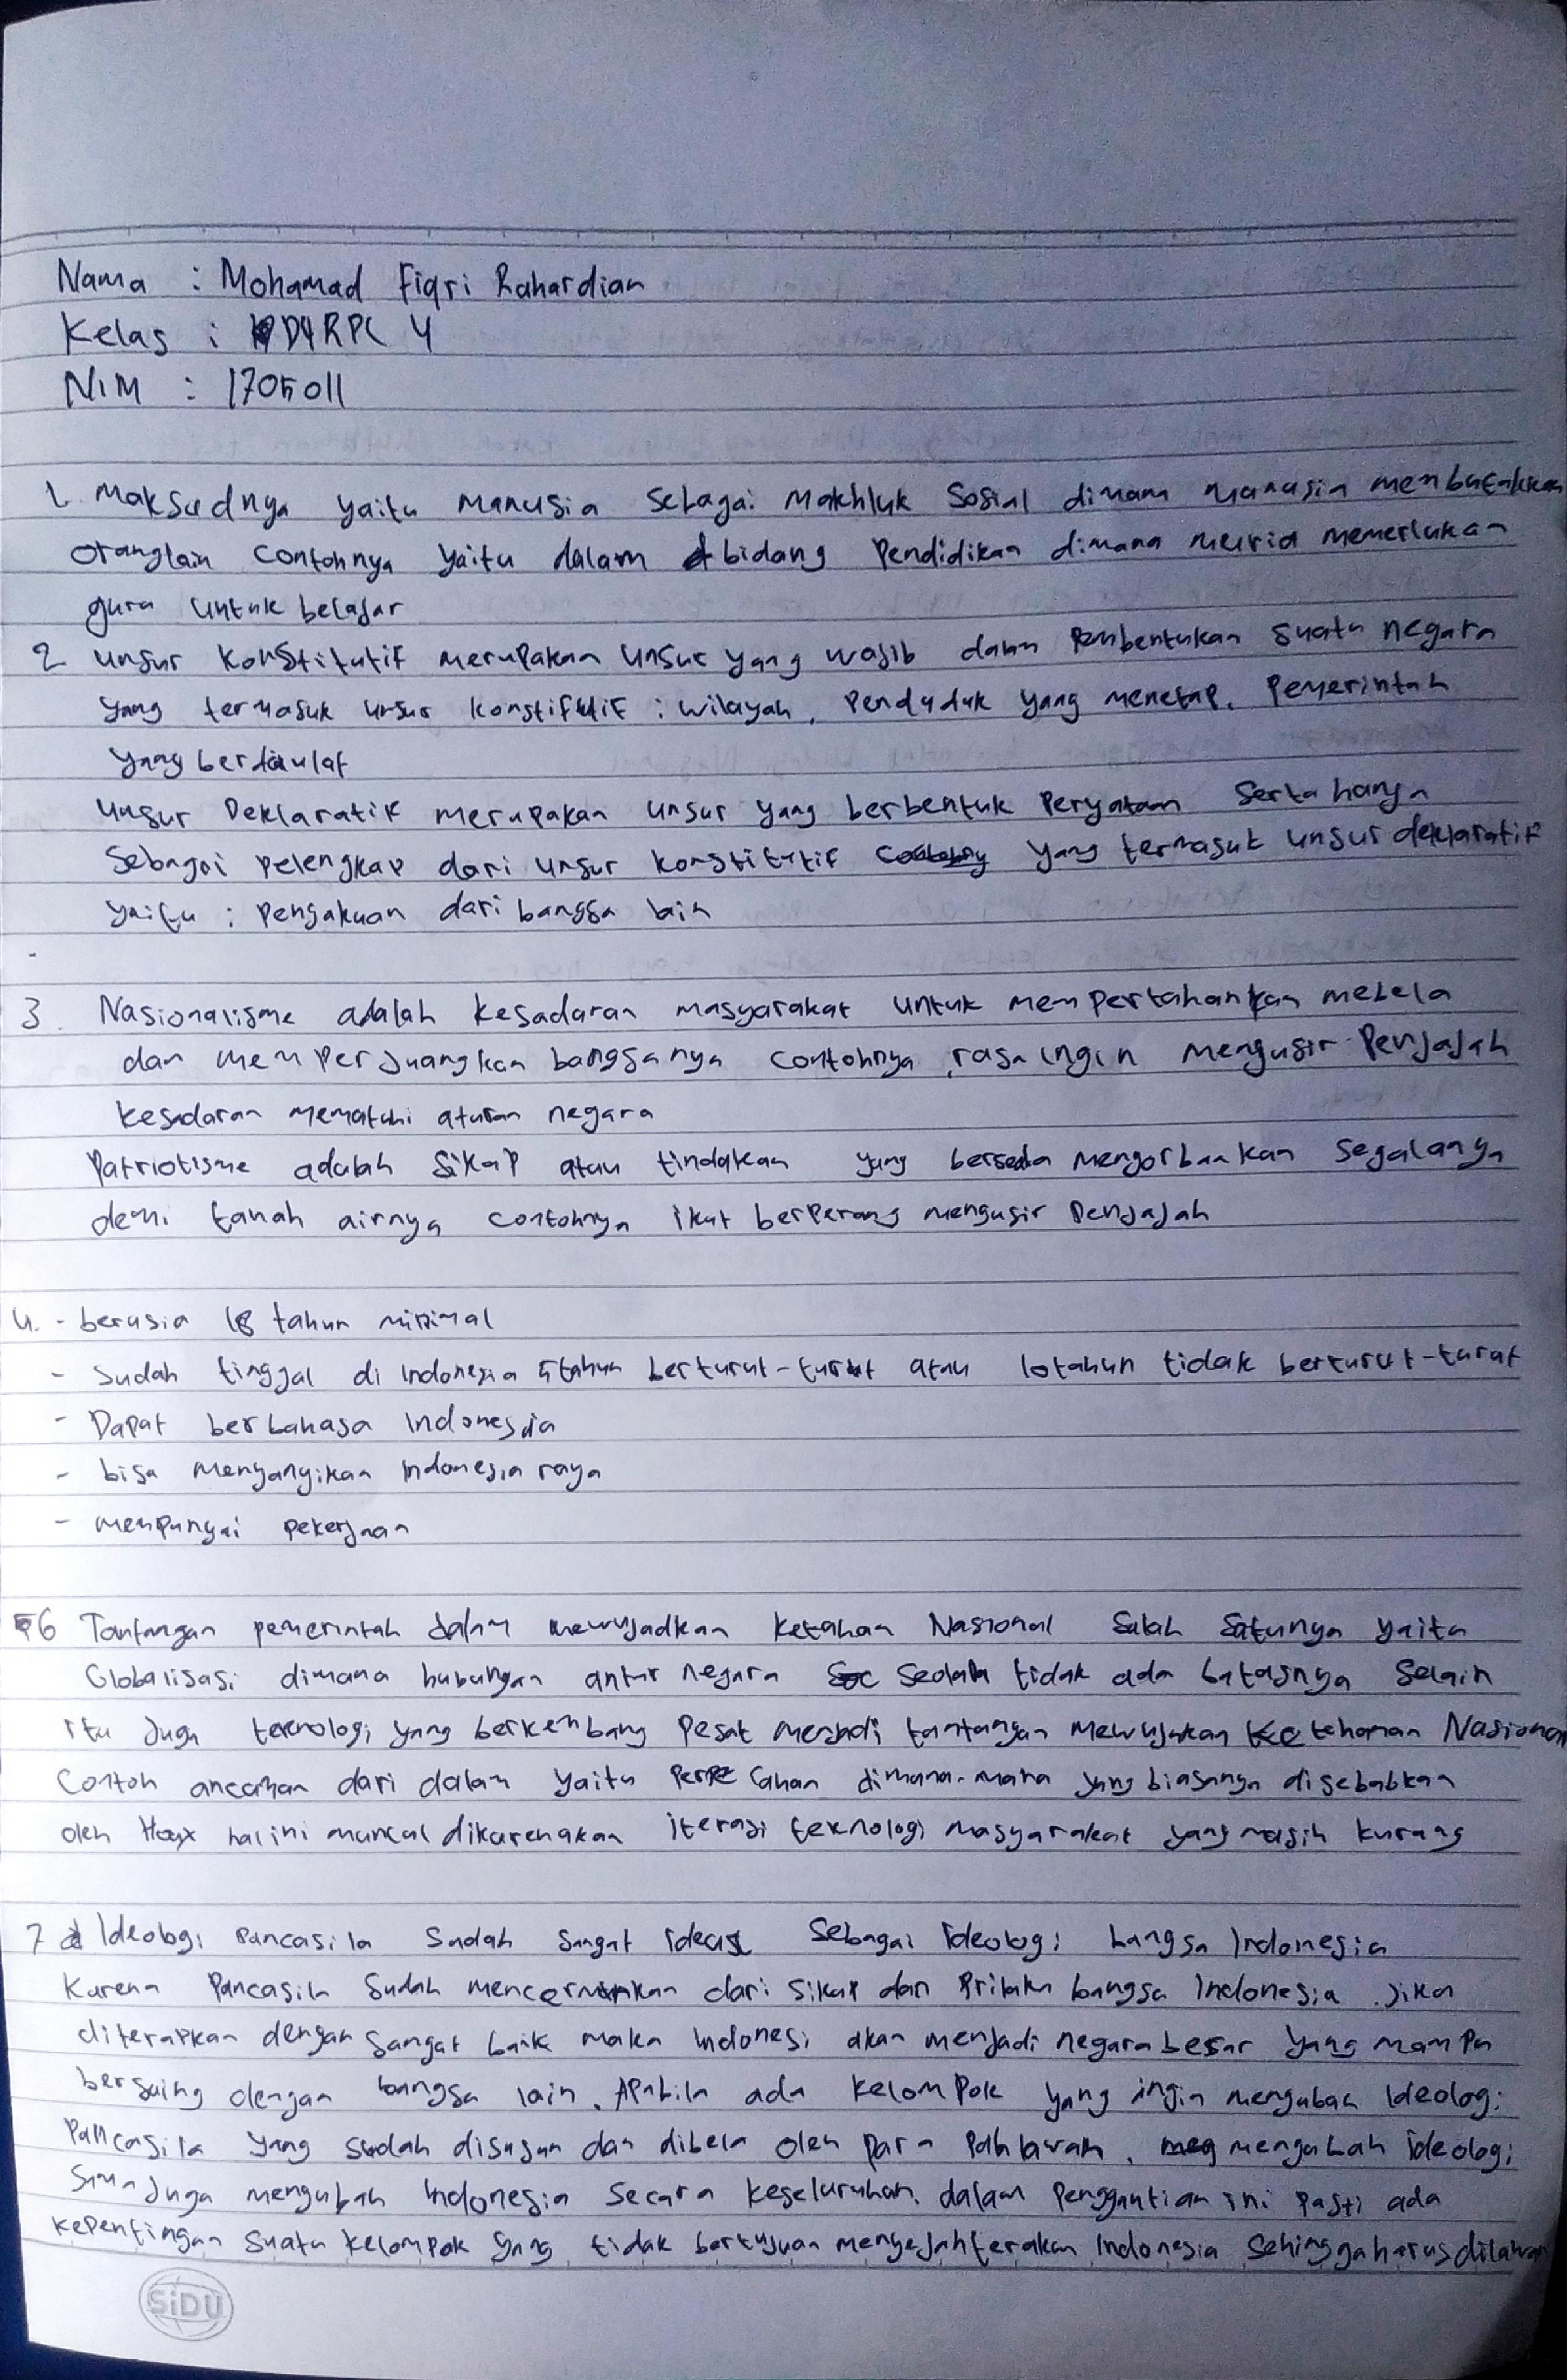 Nama : Mohamad Fiqri Rahardian
Kelas : D4RPL 4
NIM : 1705011
1. Maksudnya yaitu Manusia sebagai Makhluk Sosial dimana manusia membutuhkan
oranglain contohnya yaitu dalam bidang Pendidikan dimana murid memerlukan
guru untuk belajar
2 unsur Konstitutif merupakan unsur yang wajib dalam pembentukan suatu negara
yang termasuk unsur konstitutif : wilayah, Penduduk yang menetap, Pemerintah
yang berdaulat
unsur Deklaratif merupakan unsur yang berbentuk Peryataan serta hanya
Sebagai pelengkap dari unsur konstitutif yang termasuk unsur deklaratif
yaitu : Pengakuan dari bangsa lain
3. Nasionalisme adalah kesadaran masyarakat untuk mempertahankan membela
dan memperjuangkan bangsanya contohnya, rasa ingin mengusir Penjajah
kesadaran mematuhi aturan negara
Patriotisme adalah sikap atau tindakan yang bersedia mengorbankan segalanya
demi tanah airnya contohnya ikut berperang mengusir Penjajah
4. - berusia 18 tahun minimal
- Sudah tinggal di Indonesia 5tahun berturut-turut atau 10tahun tidak berturut-turut
- Dapat berbahasa Indonesia
- bisa menyanyikan Indonesia raya
- mempunyai pekerjaan
6 Tantangan pemerintah dalam mewujadkan ketahan Nasional Salah Satunya yaitu
Globalisasi dimana hubungan antar negara tidak ada batasnya Selain
itu Juga teknologi yang berkembang pesat menjadi tantangan mewujukan ketehanan Nasional
Contoh ancaman dari dalam yaitu dimana-mana yang biasanya disebabkan
oleh Hoax hal ini muncul dikarenakan iterasi teknologi masyarakat yang masih kurang
7 Ideologi Pancasila Sudah Sangat ideal Sebagai ideologi bangsa Indonesia
Karena Pancasila Sudah mencerminkan dari sikap dan Prilaku bangsa Indonesia. Jika
diterapkan dengan sangat baik maka Indonesi akan menjadi negara besar yang mampu
bersaing dengan bangsa lain. Apabila ada kelompok yang ingin mengubah Ideologi
Pancasila yang sudah disusun dan dibela oleh para Pahlawan, mengubah ideologi
Sama Juga mengubah Indonesia Secara keseluruhan. dalam penggantian ini pasti ada
kepentingan Suatu kelompok yang tidak bertujuan mensejahterakan Indonesia Sehingga harus dilawan
SiDU